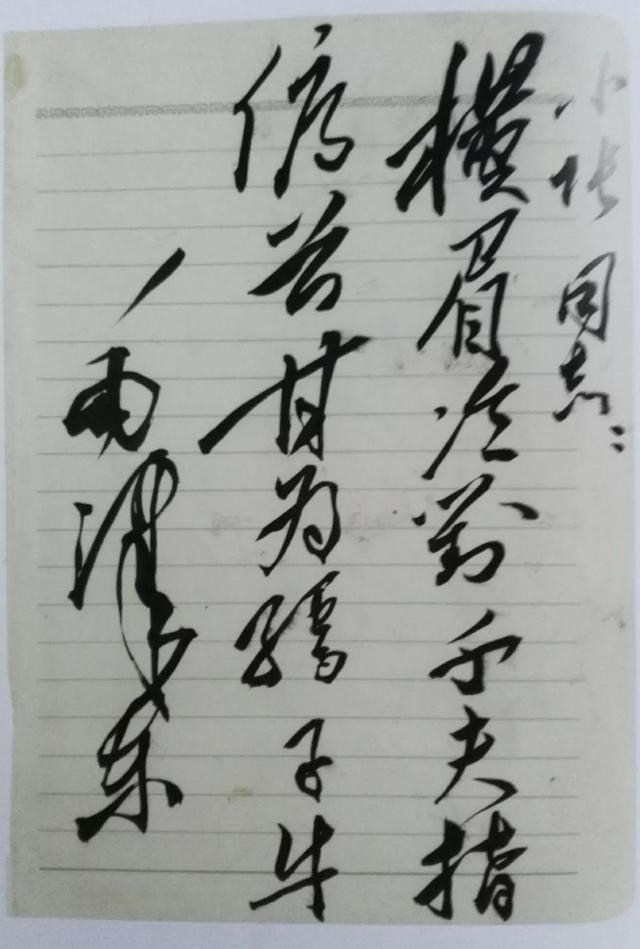 小张同志：
橫眉冷對千夫指
俯首甘为孺子牛
毛泽东